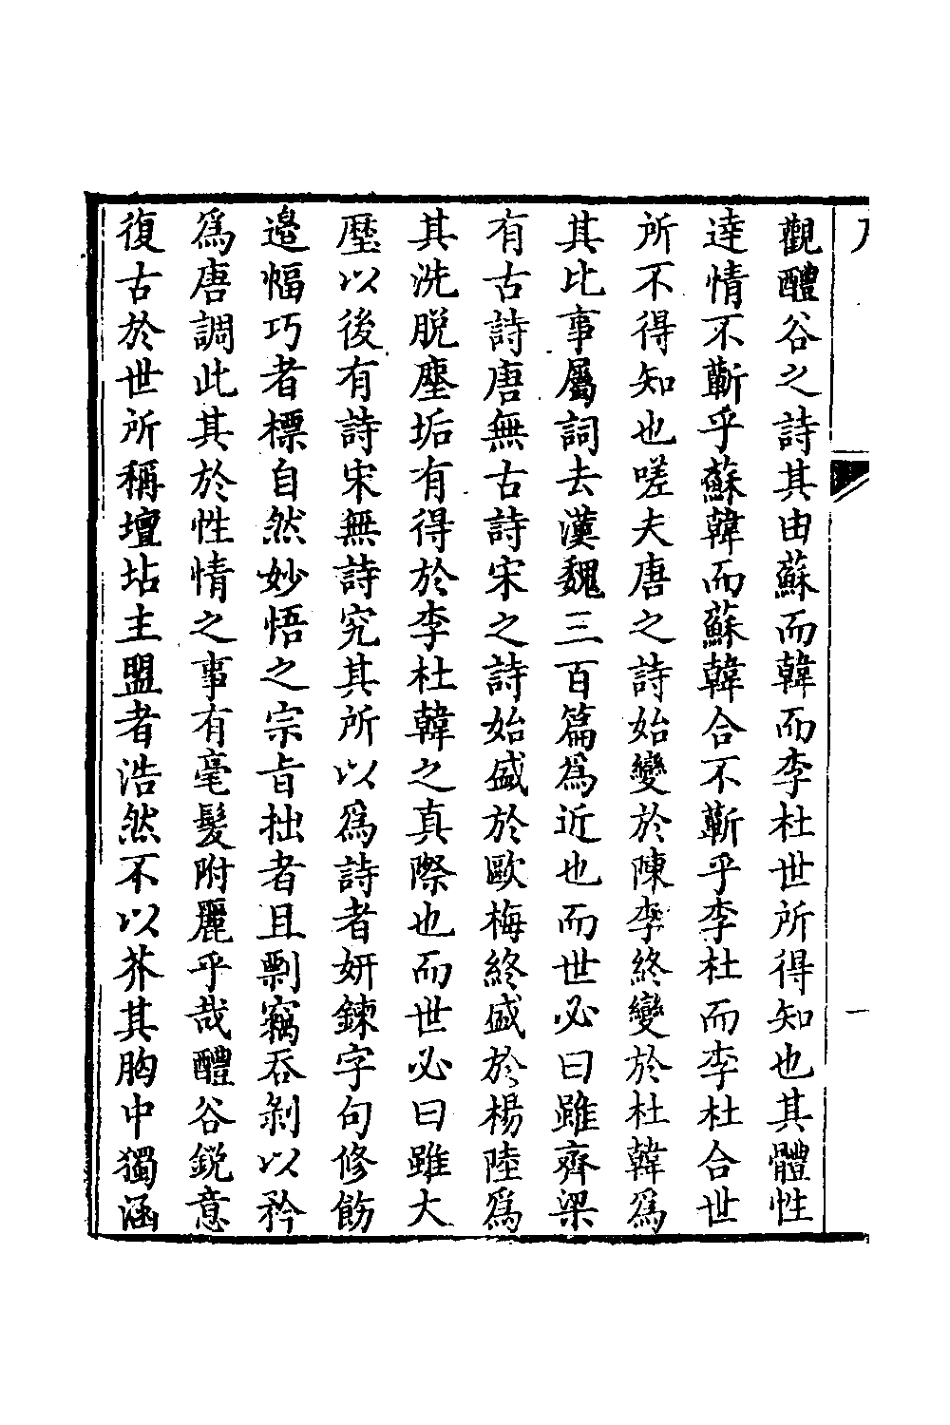 觀醴谷之詩其由蘇而韓而李杜世所得知也其體性
達情不蘄乎蘇韓而蘇韓合不蘄乎李杜而李杜合世
所不得知也嗟夫唐之詩始變於陳李終變於杜韓爲
其比事屬詞去漢魏三百篇爲近也而世必曰雖齊梁
有古詩唐無古詩宋之詩始盛於歐梅終盛於楊陸爲
其洗脫塵垢有得於李杜韓之真際也而世必曰雖大
歷以後有詩宋無詩究其所以爲詩者妍鍊字句修飭
邉幅巧者標自然妙悟之宗旨拙者且剽竊吞剝以矜
爲唐調此其於性情之事有毫髮附麗乎哉醴谷銳意
復古於世所稱壇坫主盟者浩然不以芥其胸中獨涵
一